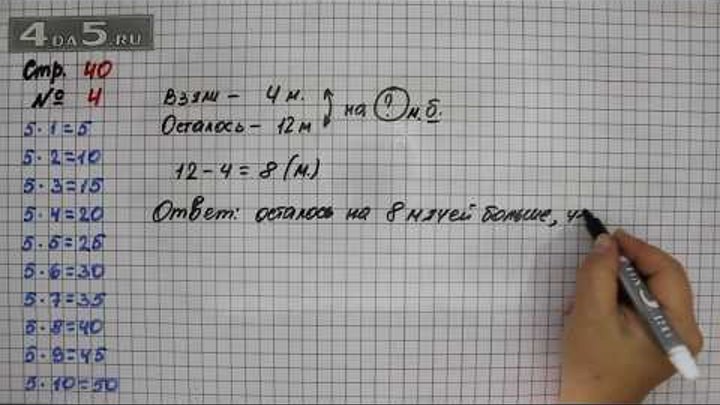 4DA5.RU
Стр. 40
№ 4
5·1=5
5·2=10
5·3=15
5·4=20
5·5=25
5·6=30
5·7=35
5·8=40
5·9=45
5·10=50
Взяли – 4 м.
Осталось – 12 м
на ? м. б.
12 – 4 = 8 (м.)
Ответ: осталось на 8 мячей больше, ч